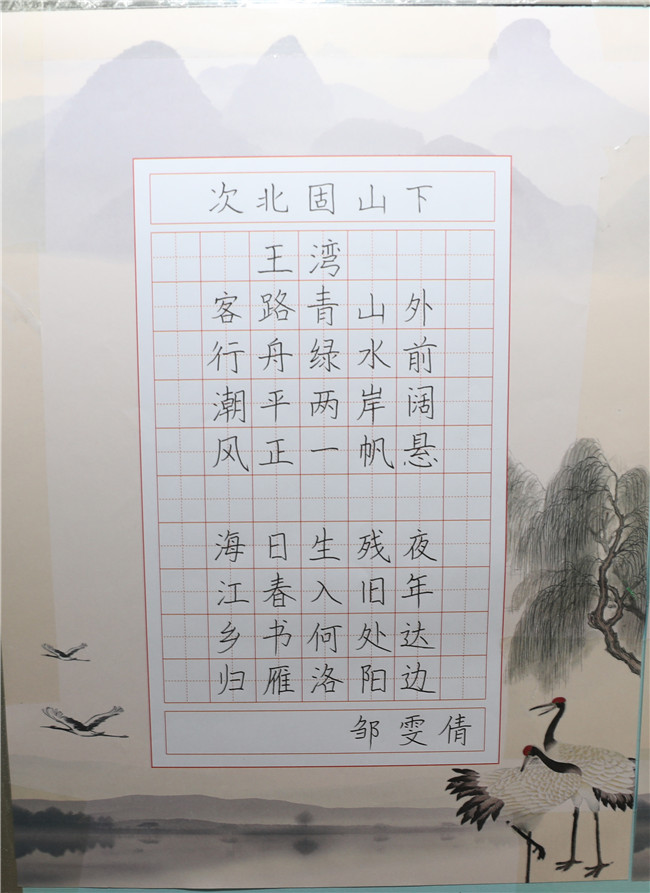 次北固山下
王湾
客路青山外
行舟绿水前
潮平两岸阔
风正一帆悬
海日生残夜
江春入旧年
乡书何处达
归雁洛阳边
邹雯倩